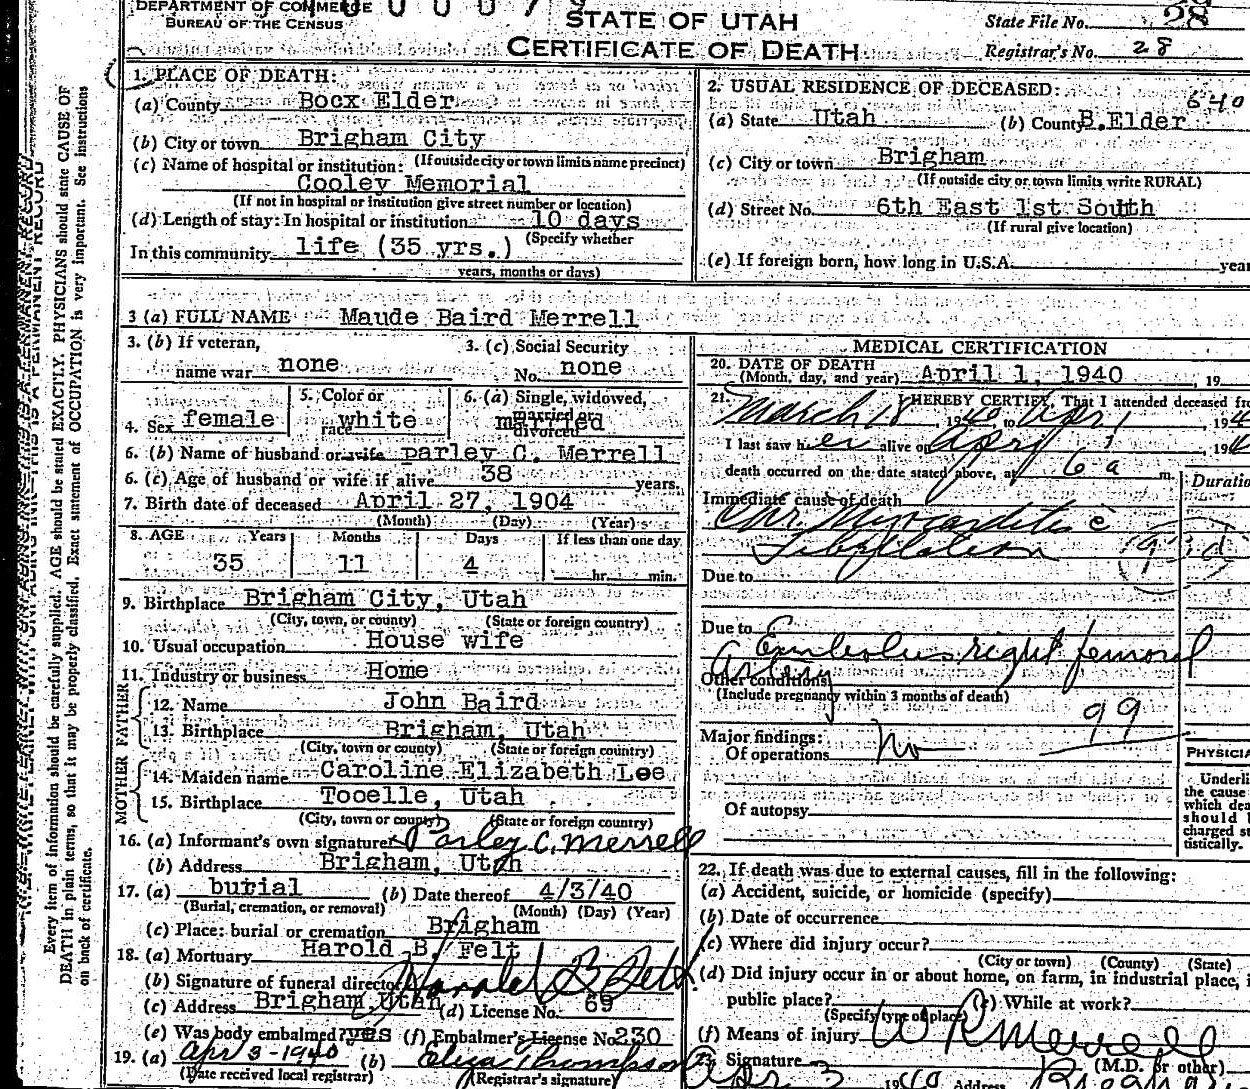 DEPARTMENT OF COMMERCE
BUREAU OF THE CENSUS
STATE OF UTAH
CERTIFICATE OF DEATH
State File No. 28
Registrar's No. 28
Every item of information should be carefully supplied. AGE should be stated EXACTLY. PHYSICIANS should state CAUSE OF
DEATH in plain terms, so that it may be properly classified. Exact statement of OCCUPATION is very important. See instructions
on back of certificate.
1. PLACE OF DEATH:
(a) County Bocx Elder
(b) City or town Brigham City
(If outside city or town limits name precinct)
(c) Name of hospital or institution:
Cooley Memorial
(If not in hospital or institution give street number or location)
(d) Length of stay: In hospital or institution 10 days
(Specify whether
In this community life (35 yrs.)
years, months or days)
2. USUAL RESIDENCE OF DECEASED:
640
(a) State Utah (b) County B.Elder
(c) City or town Brigham
(If outside city or town limits write RURAL)
(d) Street No. 6th East 1st South
(If rural give location)
(e) If foreign born, how long in U.S.A. year
3 (a) FULL NAME Maude Baird Merrell
3. (b) If veteran,
name war none
3. (c) Social Security
No. none
4. Sex female
5. Color or
race white
6. (a) Single, widowed,
married or
divorced married
6. (b) Name of husband or wife parley C. Merrell
6. (c) Age of husband or wife if alive 38 years.
7. Birth date of deceased April 27, 1904
(Month) (Day) (Year)
8. AGE Years Months Days If less than one day
35 11 4 hr. min.
9. Birthplace Brigham City, Utah
(City, town, or county) (State or foreign country)
10. Usual occupation House wife
11. Industry or business Home
FATHER
12. Name John Baird
13. Birthplace Brigham, Utah
(City, town or county) (State or foreign country)
MOTHER
14. Maiden name Caroline Elizabeth Lee
15. Birthplace Tooelle, Utah
(City, town or county) (State or foreign country)
16. (a) Informant's own signature Parley C. Merrell
(b) Address Brigham, Utah
17. (a) burial (b) Date thereof 4/3/40
(Burial, cremation, or removal) (Month) (Day) (Year)
(c) Place: burial or cremation Brigham
18. (a) Mortuary Harold B. Felt
(b) Signature of funeral director Harold B Felt
(c) Address Brigham Utah (d) License No. 69
(e) Was body embalmed? yes (f) Embalmer's License No 230
19. (a) Apr 3-1940 (b) Eliza Thompson
(Date received local registrar) (Registrar's signature)
MEDICAL CERTIFICATION
20. DATE OF DEATH
(Month, day, and year) April 1, 1940, 19
21. I HEREBY CERTIFY, That I attended deceased fr
March 18, 1940, to Apr 1, 194
I last saw her alive on April 1 194
death occurred on the date stated above, at 6 a m.
Duratio
Immediate cause of death
Chr. Myocarditis c
Fibrillation
93d
Due to
Due to Embolus right femoral
artery
Other conditions
(Include pregnancy within 3 months of death)
99
Major findings:
Of operations No
Of autopsy
PHYSICIA
Underli
the cause
which dea
should b
charged st
tistically.
22. If death was due to external causes, fill in the following:
(a) Accident, suicide, or homicide (specify)
(b) Date of occurrence
(c) Where did injury occur?
(City or town) (County) (State)
(d) Did injury occur in or about home, on farm, in industrial place, i
public place? (e) While at work?
(Specify type of place)
(f) Means of injury
23. Signature W R Merrell
(M.D. or other)
Apr. 3 1940 Address